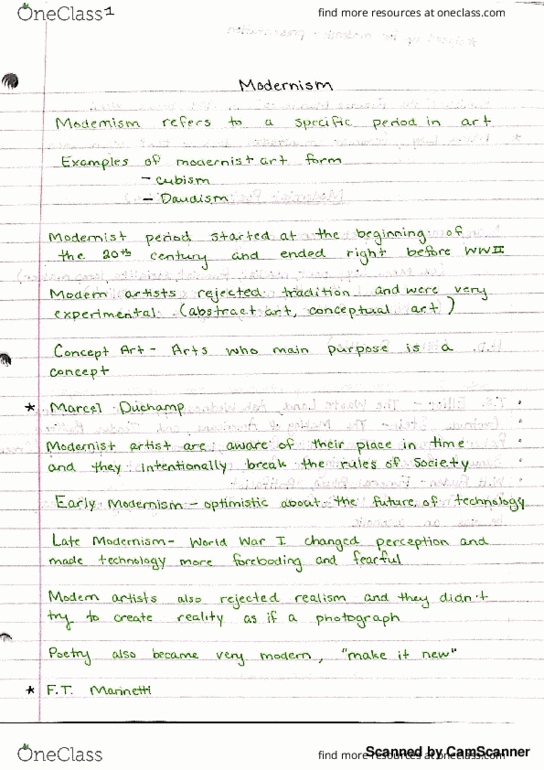 OneClass 1
find more resources at oneclass.com
Modernism
Modernism refers to a specific period in art
Examples of modernist art form
- cubism
- Daudism
Modernist period started at the beginning of
the 20th century and ended right before WWII
Modern artists rejected tradition and were very
experimental (abstract art, conceptual art)
Concept Art - Arts who main purpose is a
concept
* Marcel Duchamp
Modernist artist are aware of their place in time
and they intentionally break the rules of society
Early Modernism - optimistic about the future of technology
Late Modernism - World War I changed perception and
made technology more foreboding and fearful
Modern artists also rejected realism and they didn't
try to create reality as if a photograph
Poetry also became very modern, "make it new"
* F.T. Marinetti
OneClass
find more resources at oneclass.com
Scanned by CamScanner